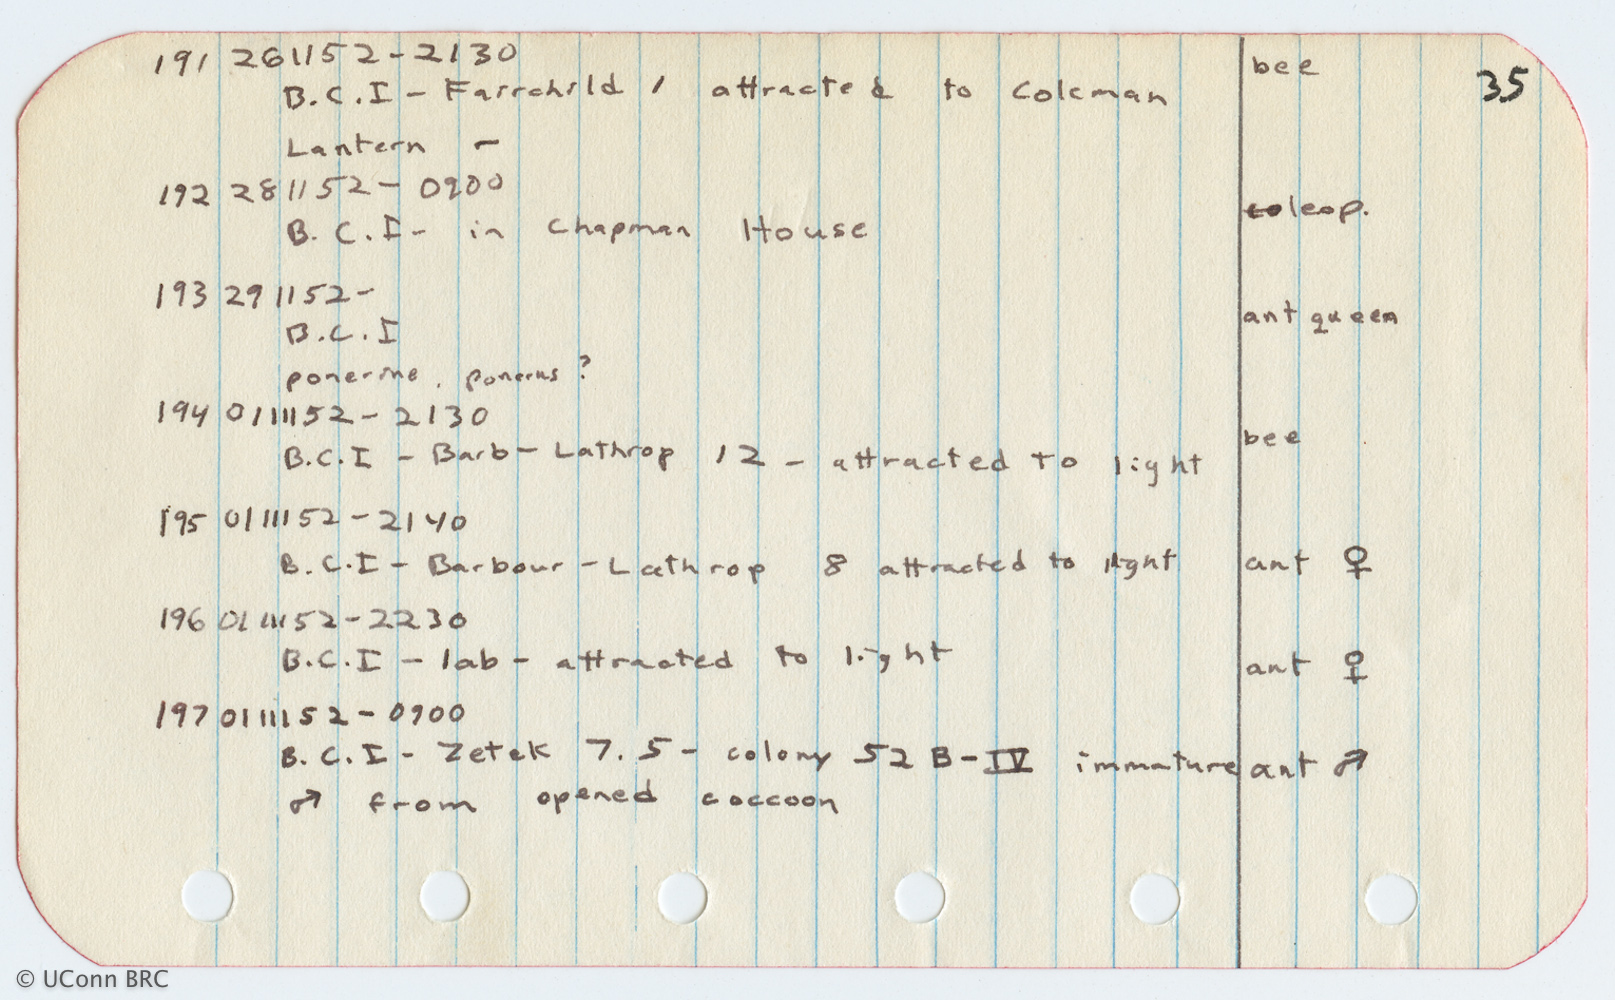 191 261152-2130 bee 35
B.C.I - Fairchild 1 attracted to Coleman
Lantern -
192 281152- 0900 coleop.
B.C.I- in Chapman House
193 291152- ant queen
B.C.I
ponerine, ponerus?
194 01111152- 2130 bee
B.C.I - Barb-Lathrop 12 - attracted to light
195 0111152-2140
B.C.I- Barbour-Lathrop 8 attracted to light ant ♀
196 0111152-2230
B.C.I - lab - attracted to light ant ♀
197 0111152-0900
B.C.I- Zetek 7.5- colony 52 B-IV immature ant ♂
♂ from opened coccoon
© UConn BRC